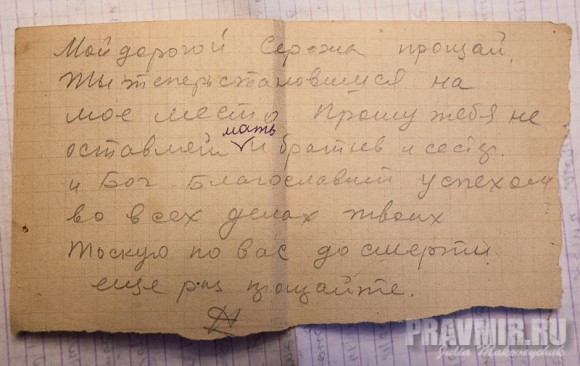 Мой дорогой Сережа прощай,
Ты теперь становишся на
мое место Прошу тебя не
оставляй мать и братьев и сестр
и Бог Благославит успехом
во всех делах твоих
Тоскую по вас до смерти
еще раз прощайте.
PRAVMIR.RU
Julia Makoveychuk